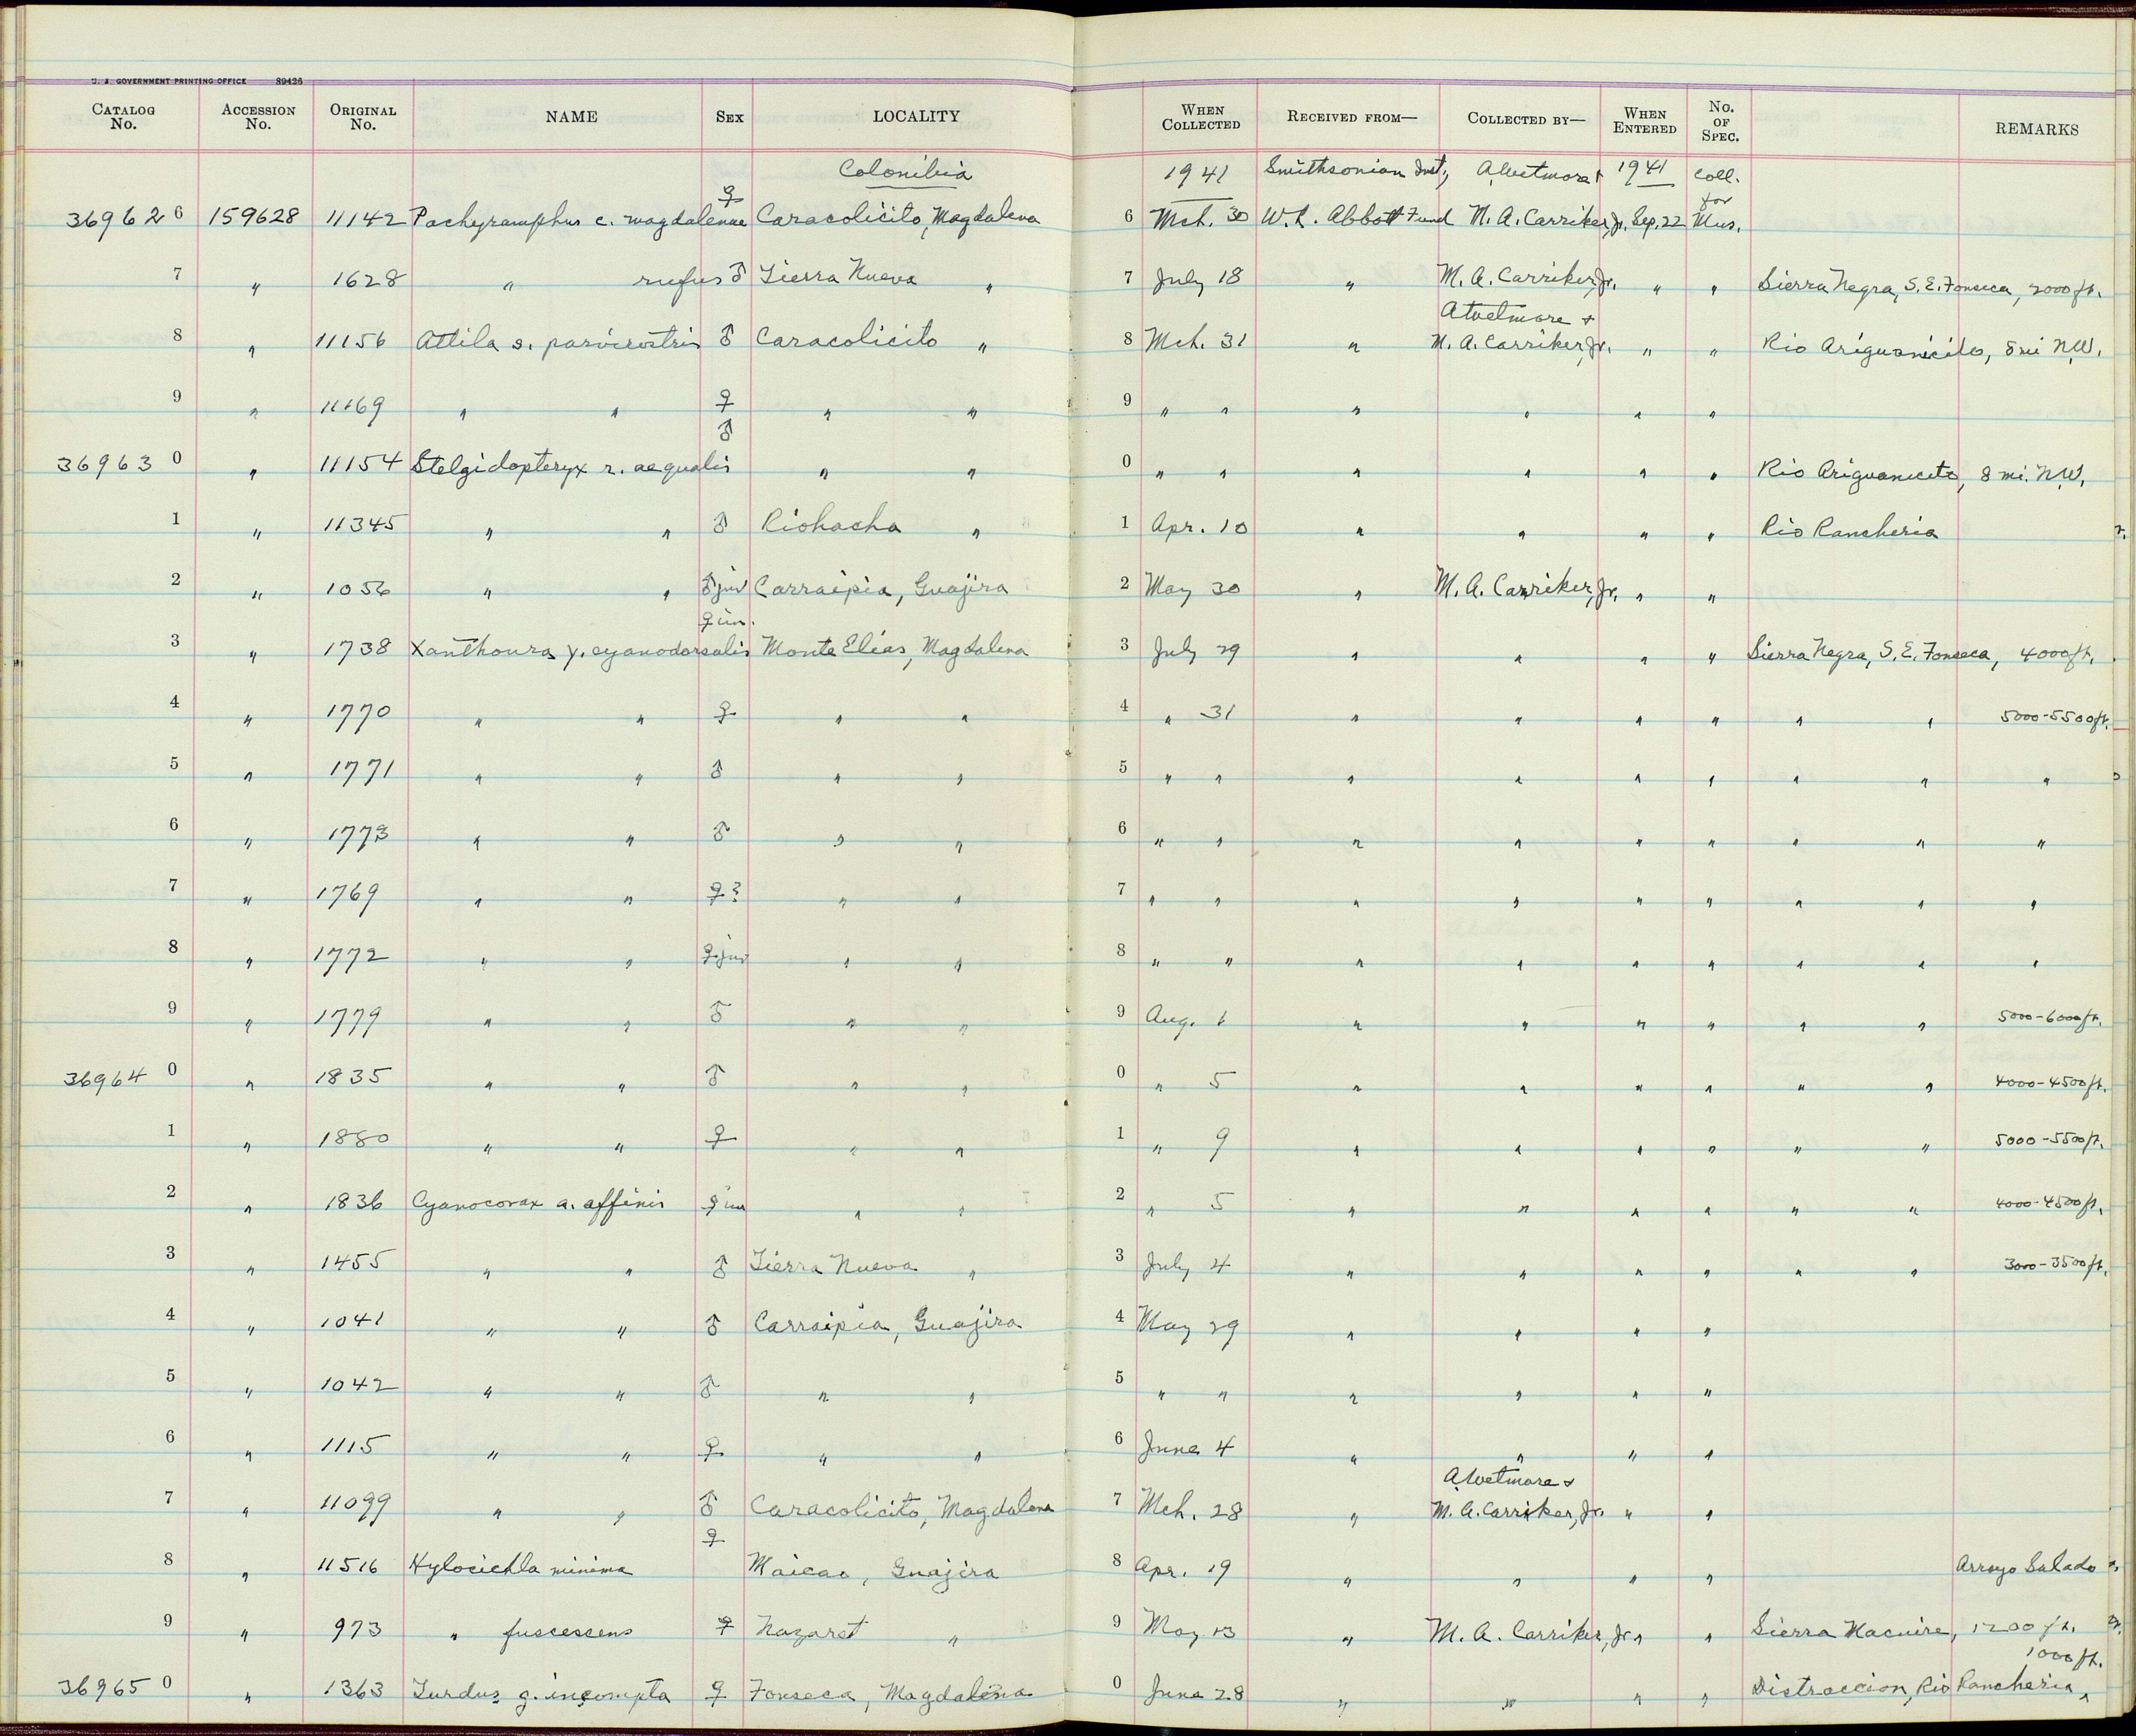 U. S. GOVERNMENT PRINTING OFFICE 89426
CATALOG No. ACCESSION No. ORIGINAL No. NAME SEX LOCALITY WHEN COLLECTED RECEIVED FROM— COLLECTED BY— WHEN ENTERED No. OF SPEC. REMARKS
Colombia 1941 Smithsonian Inst., A. Wetmore + 1941 Coll. for
369626 159628 11142 Pachyramphus c. magdalenae ♀ Caracolicito, Magdalena 6 Mch. 30 W. L. Abbott Fund M. A. Carriker, Jr. Sep. 22 Mus.
7 " 1628 " rufus ♂ Tierra Nueva " 7 July 18 " M. A. Carriker, Jr. " " Sierra Negra, S. E. Fonseca, 2000 ft.
A. Wetmore +
8 " 11156 Attila s. parvirostris ♂ Caracolicito " 8 Mch. 31 " M. A. Carriker, Jr. " " Rio Ariguanicito, 8 mi N.W.
9 " 11169 " " ♀ " " 9 " " " " " "
369630 " 11154 Stelgidopteryx r. aequalis ♂ " " 0 " " " " " " Rio Ariguanicito, 8 mi. N.W.
1 " 11345 " " ♂ Riohacha " 1 Apr. 10 " " " " Rio Rancheria
2 " 1056 " " ♂ juv Carraipia, Guajira 2 May 30 " M. A. Carriker, Jr. " "
3 " 1738 Xanthoura y. cyanodorsalis ♀ im. Monte Elias, Magdalena 3 July 29 " " " " Sierra Negra, S. E. Fonseca, 4000 ft.
4 " 1770 " " ♀ " " 4 " 31 " " " " " " 5000-5500 ft.
5 " 1771 " " ♂ " " 5 " " " " " " " " "
6 " 1773 " " ♂ " " 6 " " " " " " " " "
7 " 1769 " " ♀? " " 7 " " " " " " " " "
8 " 1772 " " ♀ juv " " 8 " " " " " " " " "
9 " 1779 " " ♂ " " 9 Aug. 1 " " " " " " 5000-6000 ft.
369640 " 1835 " " ♂ " " 0 " 5 " " " " " " 4000-4500 ft.
1 " 1880 " " ♀ " " 1 " 9 " " " " " " 5000-5500 ft.
2 " 1836 Cyanocorax a. affinis ♀ im " " 2 " 5 " " " " " " 4000-4500 ft.
3 " 1455 " " ♂ Tierra Nueva " 3 July 4 " " " " " " 3000-3500 ft.
4 " 1041 " " ♂ Carraipia, Guajira 4 May 29 " " " "
5 " 1042 " " ♂ " " 5 " " " " " "
6 " 1115 " " ♀ " " 6 June 4 " " " "
A. Wetmore +
7 " 11099 " " ♂ Caracolicito, Magdalena 7 Mch. 28 " M. A. Carriker, Jr. " "
8 " 11516 Hylocichla minima ♀ Maicao, Guajira 8 Apr. 19 " " " " Arroyo Salado
9 " 973 " fuscescens ♀ Nazaret " 9 May 13 " M. A. Carriker, Jr. " " Sierra Macuire, 1200 ft.
1000 ft.
369650 " 1363 Turdus g. incompta ♀ Fonseca, Magdalena 0 June 28 " " " " Distraccion, Rio Rancheria,